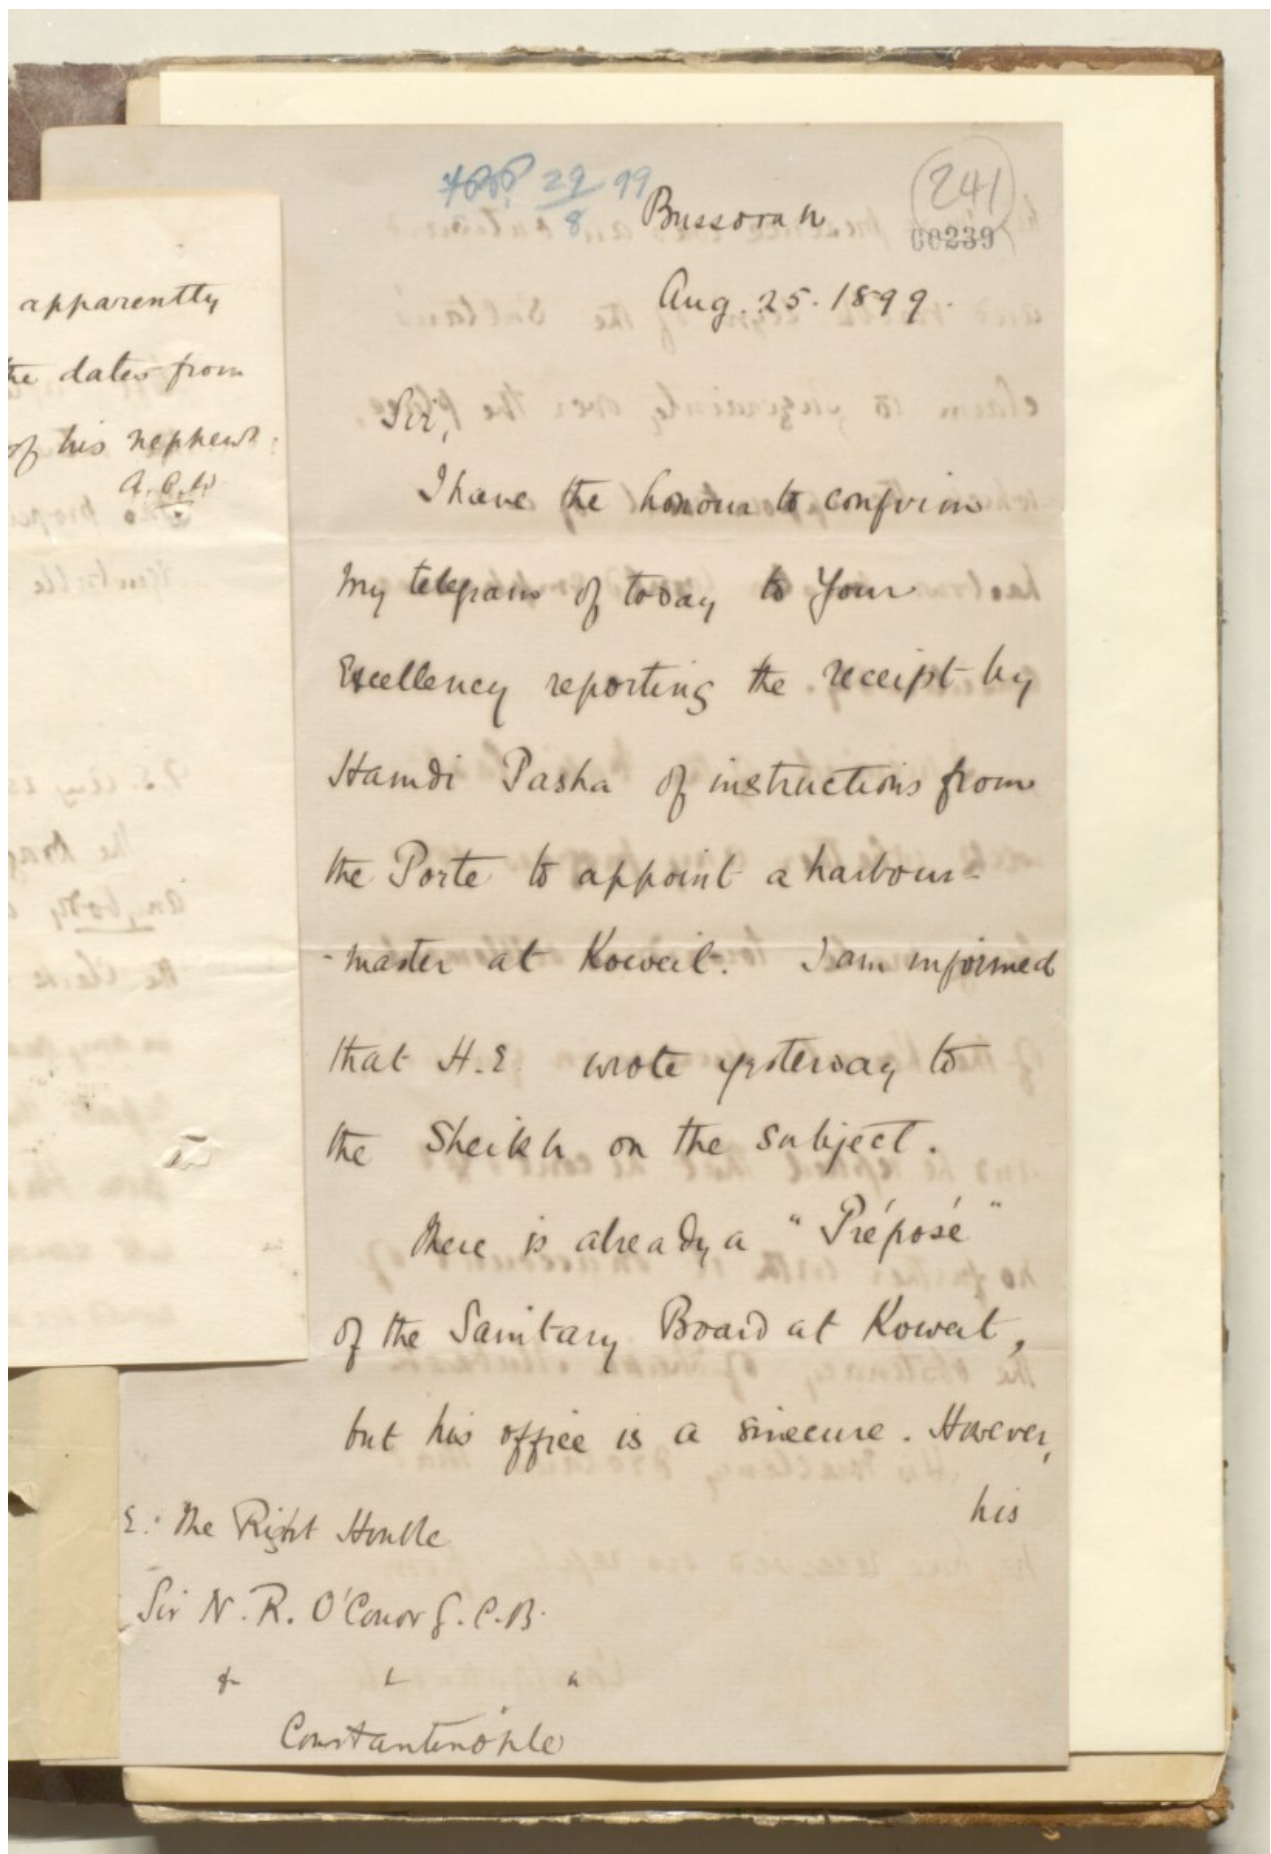 29 99
8
241
00239
Bussorah
Aug. 25. 1899.
apparently
the dates from
of his nephews.
Sir,
I have the honour to confirm
my telegram of today to Your
Excellency reporting the receipt by
Hamdi Pasha of instructions from
the Porte to appoint a harbour-
-master at Koweit. I am informed
that H.E. wrote yesterday to
the Sheikh on the subject.
There is already a "Préposé"
of the Sanitary Board at Koweit,
but his office is a sinecure. However,
his
E. The Right Honble
Sir N. R. O'Conor G.C.B.
Constantinople